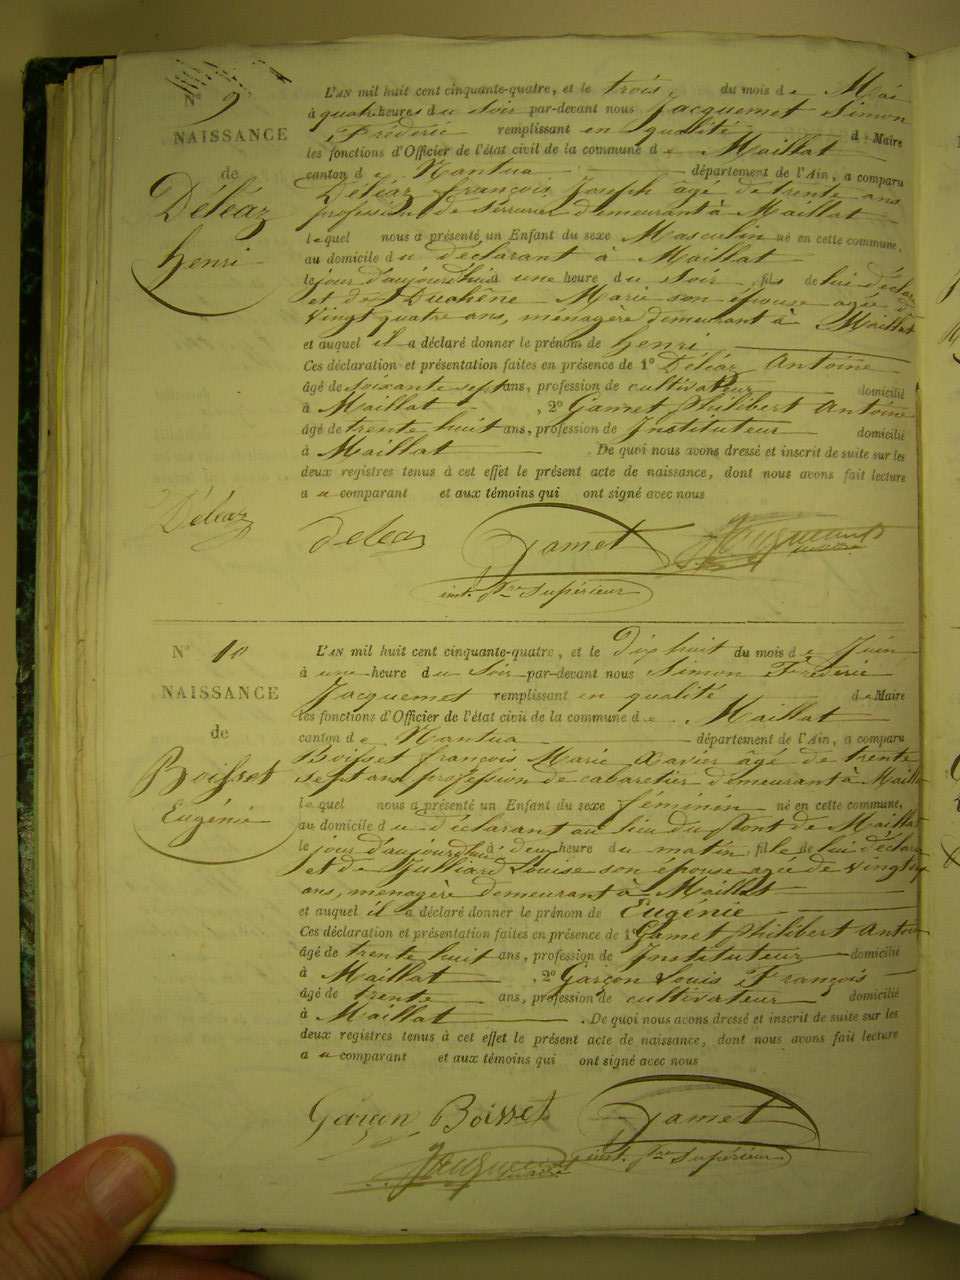 N° 9
NAISSANCE
de
Déléaz
henri
L'AN mil huit cent cinquante-quatre, et le trois, du mois de Mai
à quatre heures du soir par-devant nous Jacquemet Simon
Fréderic remplissant en qualité de Maire
les fonctions d'Officier de l'état civil de la commune de Maillat
canton de Nantua département de l'Ain, a comparu
Déléaz françois Joseph âgé de trente ans
profession de serrurier demeurant à Maillat
lequel nous a présenté un Enfant du sexe Masculin né en cette commune,
au domicile du déclarant à Maillat
le jour d'aujourd'hui à une heure du soir, fils de lui déclarant
et de Duchêne Marie son épouse agée de
vingt quatre ans, ménagère demeurant à Maillat
et auquel il a déclaré donner le prénom de henri
Ces déclaration et présentation faites en présence de 1° Déléaz Antoine
âgé de soixante sept ans, profession de cultivateur domicilié
à Maillat, 2° Gamet Philibert Antoine
âgé de trente huit ans, profession de Instituteur domicilié
à Maillat. De quoi nous avons dressé et inscrit de suite sur les
deux registres tenus à cet effet le présent acte de naissance, dont nous avons fait lecture
a u comparant et aux témoins qui ont signé avec nous
Déléaz deleaz Gamet Jacquemet
inst. pre supérieur
N° 10
NAISSANCE
de
Boisset
Eugénie
L'AN mil huit cent cinquante-quatre, et le dix huit du mois de Juin
à une heure du soir par-devant nous Simon Fréderic
Jacquemet remplissant en qualité de Maire
les fonctions d'Officier de l'état civil de la commune de Maillat
canton de Nantua département de l'Ain, a comparu
Boisset françois Marie Xavier âgé de trente
sept ans profession de cabaretier demeurant à Maillat
lequel nous a présenté un Enfant du sexe féminin né en cette commune,
au domicile du déclarant au lieu du Pont de Maillat
le jour d'aujourd'hui à deux heure du matin, fille de lui déclarant
et de Julliard Louise son épouse agée de vingt
ans, ménagère demeurant à Maillat
et auquel il a déclaré donner le prénom de Eugénie
Ces déclaration et présentation faites en présence de 1° Gamet Philibert Antoine
âgé de trente huit ans, profession de Instituteur domicilié
à Maillat, 2° Garçon Louis François
âgé de trente ans, profession de cultivateur domicilié
à Maillat. De quoi nous avons dressé et inscrit de suite sur les
deux registres tenus à cet effet le présent acte de naissance, dont nous avons fait lecture
a u comparant et aux témoins qui ont signé avec nous
Garçon Boisset Gamet
Jacquemet inst. pre supérieur